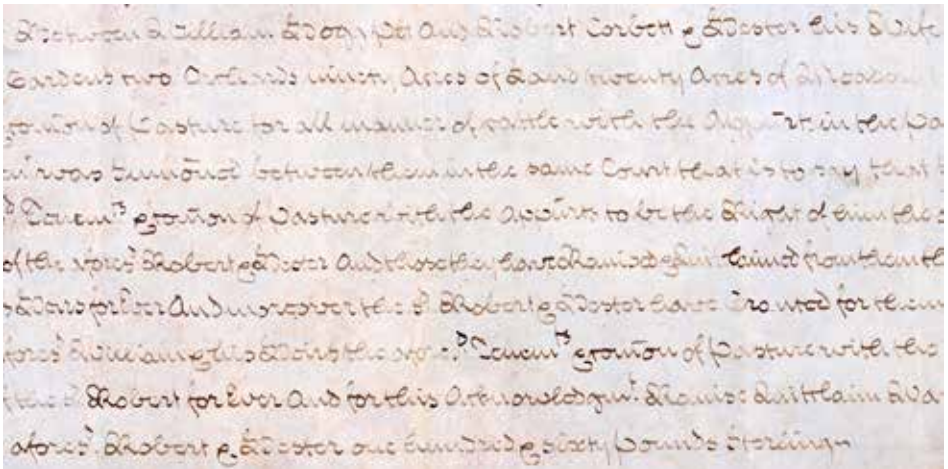 Between William Hoggpet And Robert Corbett & Hester his Wife
Gardens two Orchards ninety Acres of Land twenty Acres of Meadow
com̃on of Pasture for all manner of cattle with the Appurts. in the Pa
was Sum̃oned between them in the same Court that is to say that
Tenemts & com̃on of Pasture with the Appurts to be the Right of him the
of the aforesd Robert & Hester And those they have Remised & Quit claimed from them th
& Heirs for Ever And moreover the sd Robert & Hester have Granted for them
foresd William & his Heirs the aforesd Tenemts & com̃on of Pasture with the
the sd Robert for Ever And for this Acknowledgmt. Remise Quitclaim Wa
aforesd Robert & Hester one hundred & sixty Pounds Sterling